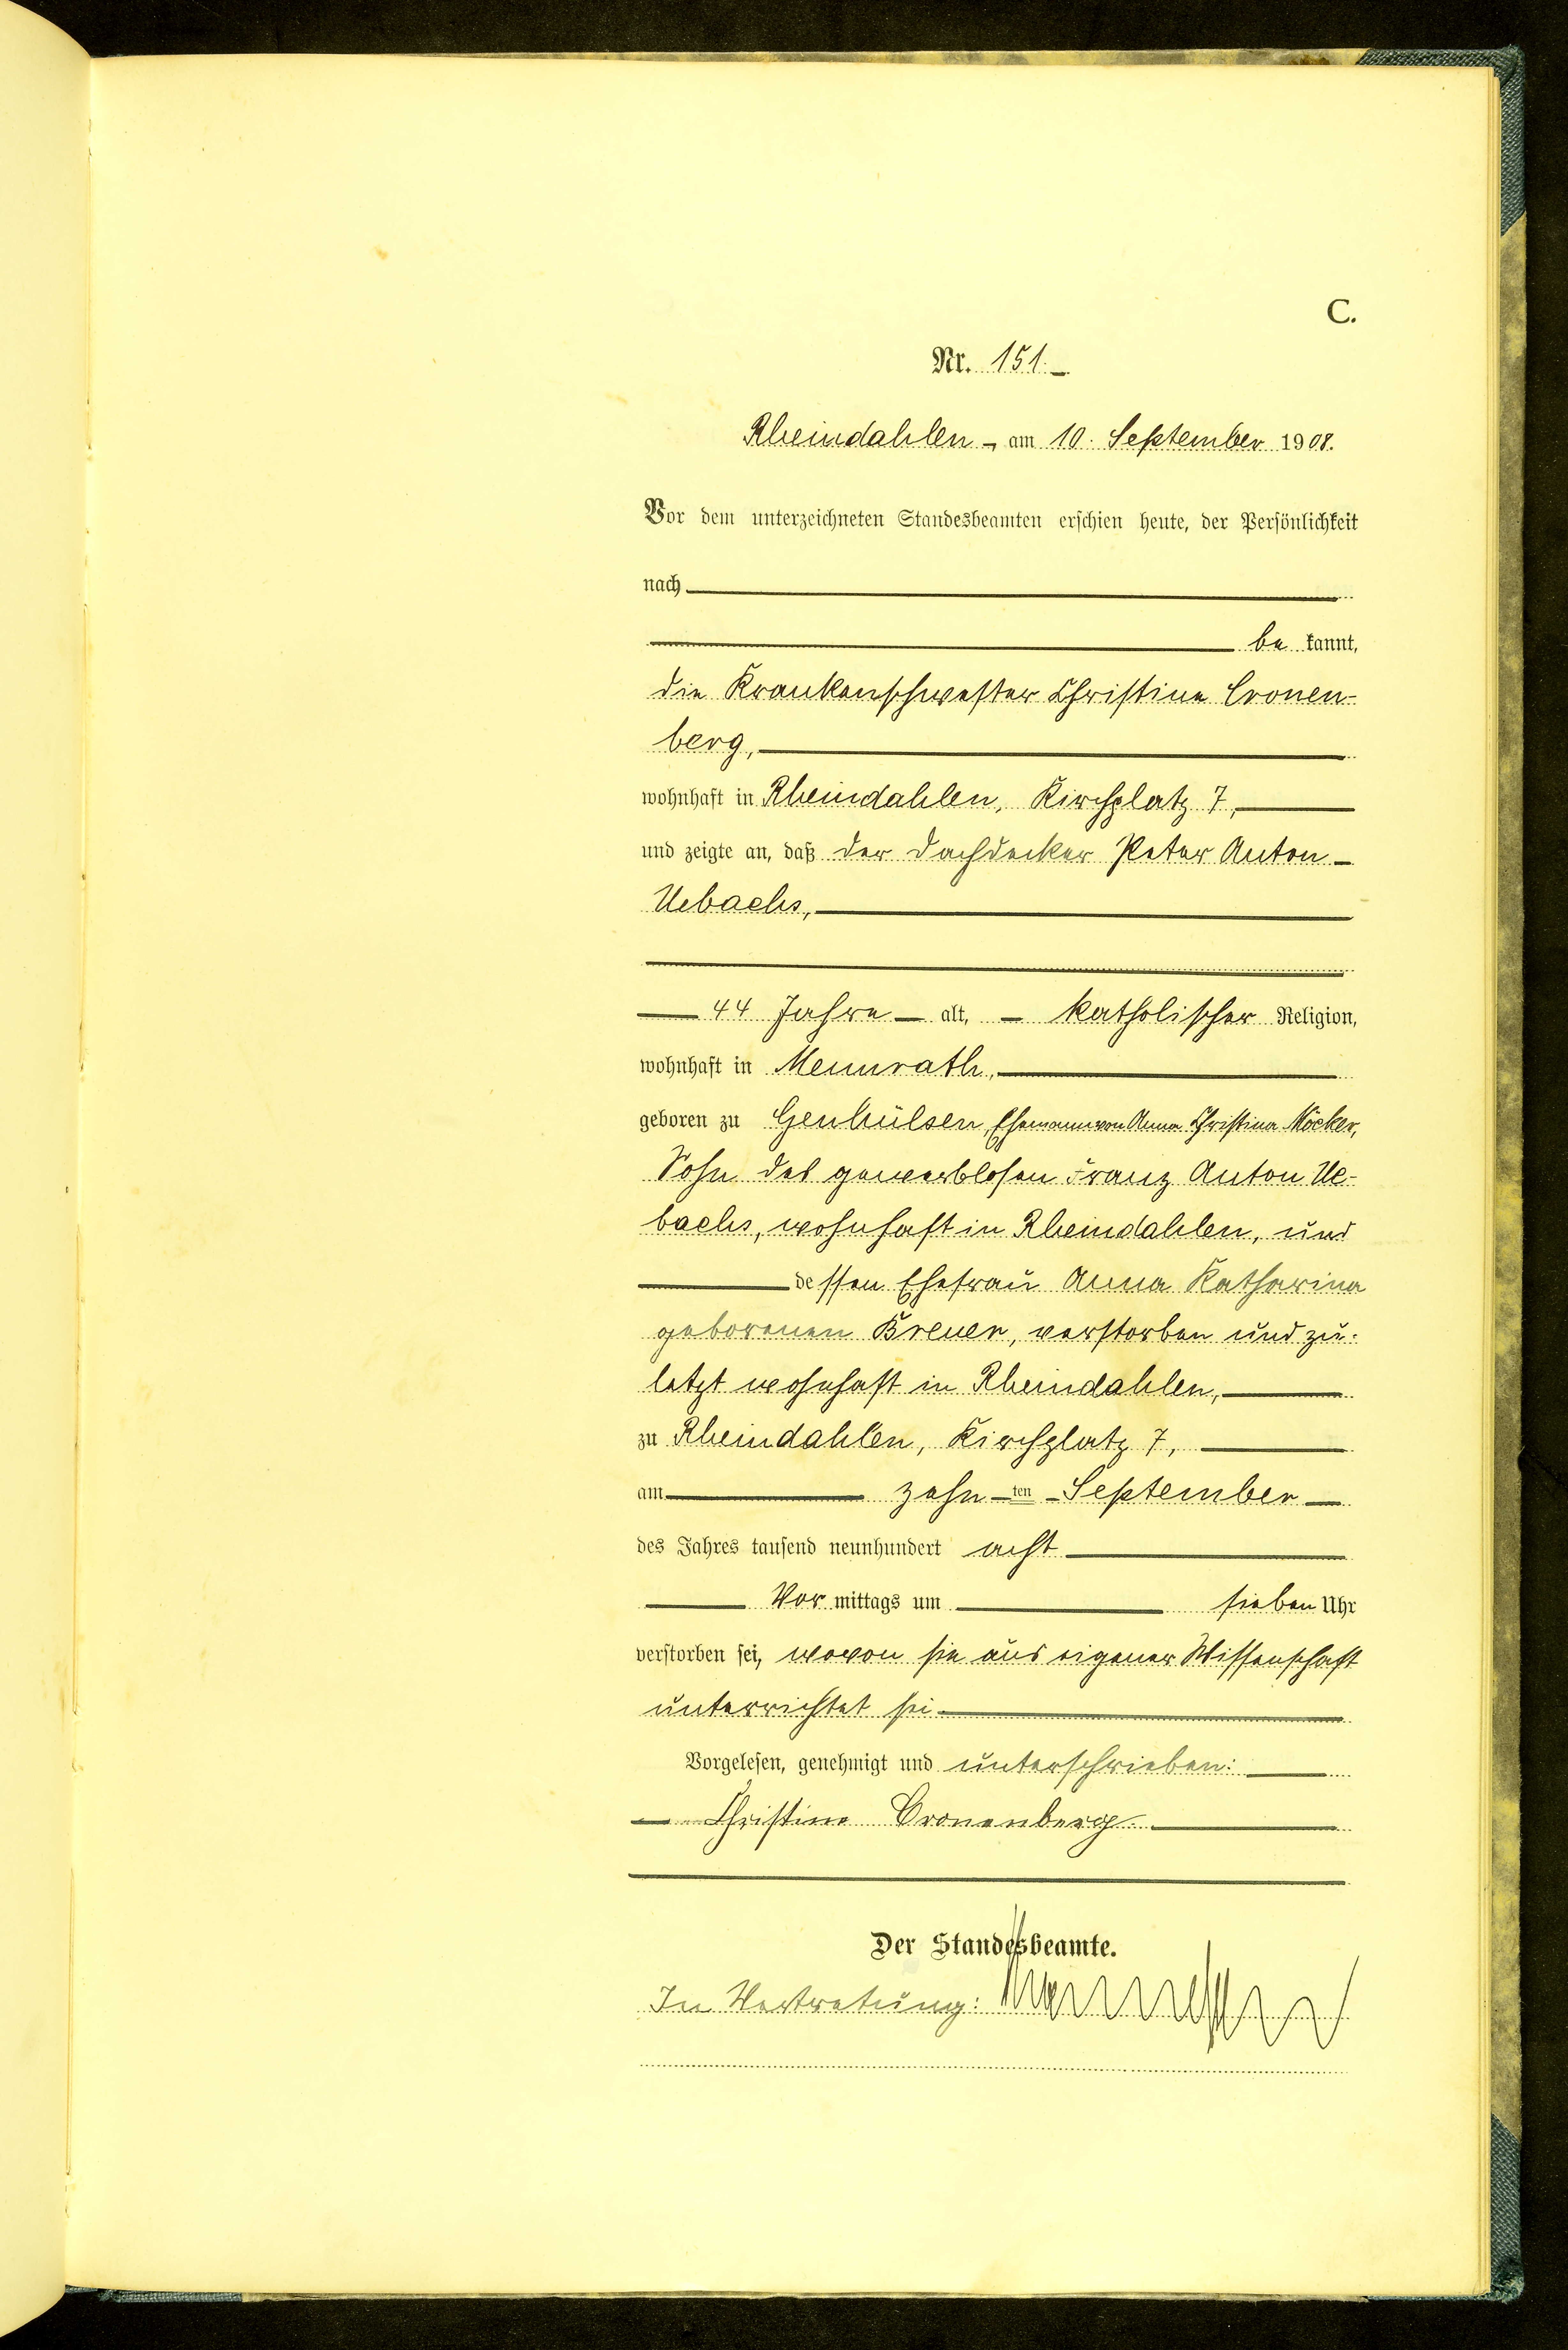 C.
Nr. 151.
Rheindahlen, am 10. September 1908.
Vor dem unterzeichneten Standesbeamten erschien heute, der Persönlichkeit
nach
be kannt,
die Krankenschwester Christine Cronen-
berg,
wohnhaft in Rheindahlen, Kirchplatz 7,
und zeigte an, daß der Dachdecker Peter Anton
Uebachs,
44 Jahre alt, katholischer Religion,
wohnhaft in Mennrath,
geboren zu Genhülsen, Ehemann von Anna Christina Möcker,
Sohn des gewerblosen Franz Anton Ue-
bachs, wohnhaft in Rheindahlen, und
dessen Ehefrau Anna Katharina
geborenen Breuer, verstorben und zu-
letzt wohnhaft in Rheindahlen,
zu Rheindahlen, Kirchplatz 7,
am zehn ten September
des Jahres tausend neunhundert acht
Vor mittags um sieben Uhr
verstorben sei, wovon sie aus eigener Wissenschaft
unterrichtet sei.
Vorgelesen, genehmigt und unterschrieben:
Christine Cronenberg.
Der Standesbeamte.
In Vertretung: